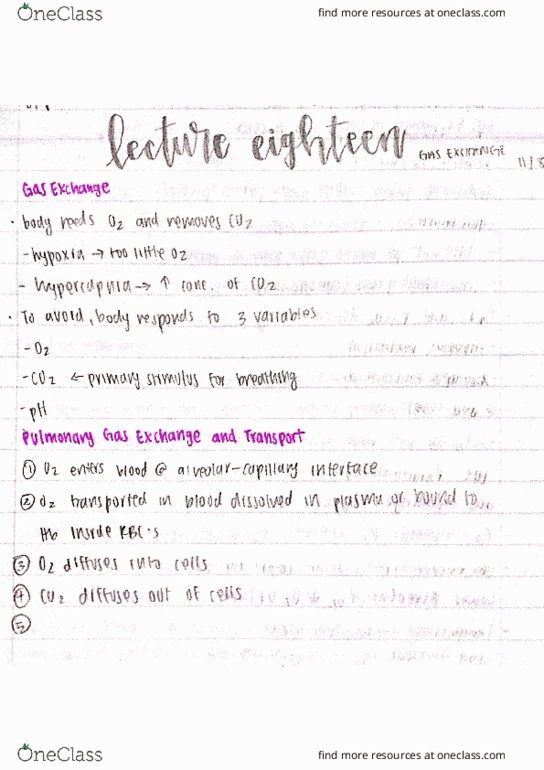 OneClass
find more resources at oneclass.com
lecture eighteen GAS EXCHANGE 11/8
Gas Exchange
· body needs O2 and removes CO2
- hypoxia → too little O2
- hypercapnia → ↑ conc. of CO2
· To avoid, body responds to 3 variables
- O2
- CO2 ← primary stimulus for breathing
- pH
Pulmonary Gas Exchange and Transport
① O2 enters blood @ alveolar-capillary interface
② O2 transported in blood dissolved in plasma or bound to
Hb inside RBC's
③ O2 diffuses into cells
④ CO2 diffuses out of cells
⑤
OneClass
find more resources at oneclass.com